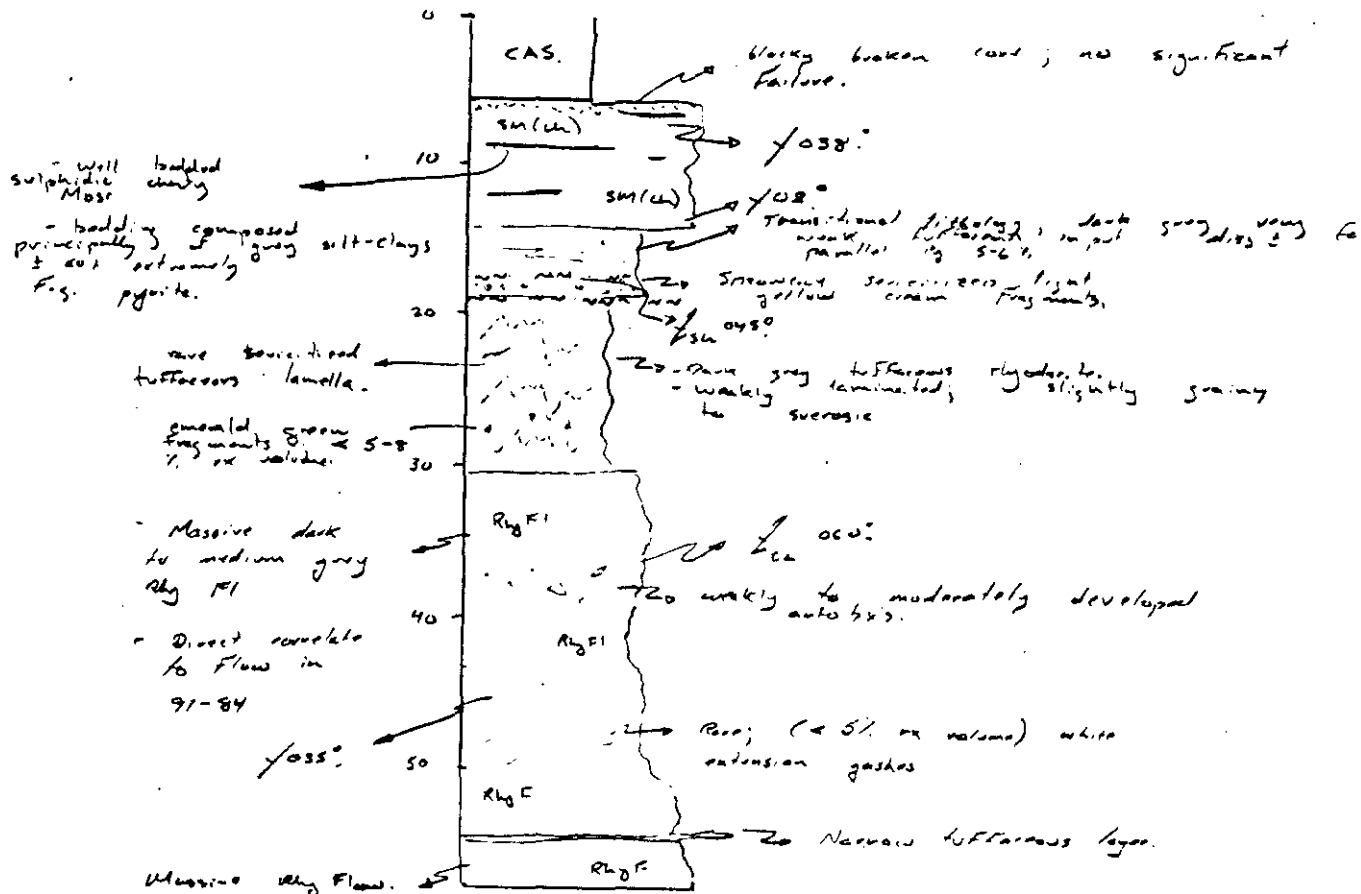 0
CAS.
blocky broken core; no significant
Failure.
sm(ch)
038°
10
- Well bedded
sulphidic cherty
- bedding composed
principally of grey silt-clays
extremely
F.g. pyrite.
sm(ch)
08°
Transitional lithology, dark grey
weak tuffaceous input
parallel Py 5-6%
~~ ~~ ~~
sericitized light
yellow cream fragments.
20
045°
rare sericitized
tuffaceous lamella.
- Dark grey tuffaceous rhyodacite
- weakly laminated; slightly grainy
to sucrosic
emerald green
fragments < 5-8
% rx volume.
30
- Massive dark
to medium grey
Rhy Fl
Rhy Fl
ca 060°
weakly to moderately developed
auto bxs.
40
- Direct correlate
to Flow in
91-84
Rhy Fl
Rare; (< 5% rx volume) white
extension gashes
035°
50
Rhy F
Narrow tuffaceous layer.
Massive Rhy Flow.
Rhy F